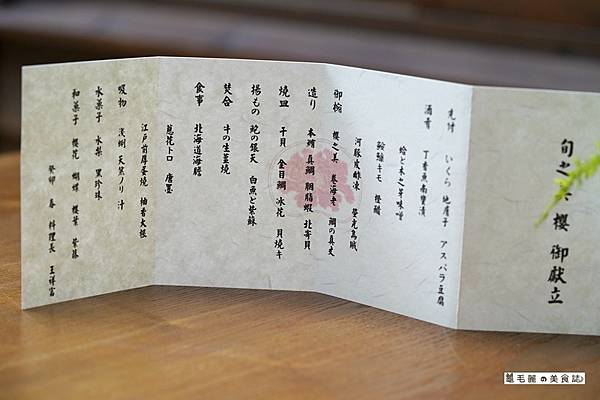 旬之 櫻 御献立
先付 いくら 地産子 アスパラ豆腐
酒肴 丁香魚南蠻漬
蛤と木之芽味噌
鮟鱇キモ 橙醋
河豚皮酢凍 螢光烏賊
御椀 櫻之美 蓁海老 鯛の真丈
造り 本鮪 真鯛 胭脂蝦 北寄貝
燒皿 干貝 金目鯛 冰花 貝燒キ
揚もの 鮀の銀天 白魚と紫蘇
焚合 牛の生薑燒
食事 北海道海膽
蔥花トロ 唐墨
江戸前厚蛋燒 柚香大根
吸物 淺蜊 天然ノリ 汁
水菓子 水梨 黑珍珠
和菓子 櫻花 蝴蝶 櫻葉 紫藤
癸卯 春 料理長 王祥富
毛麗の美食誌